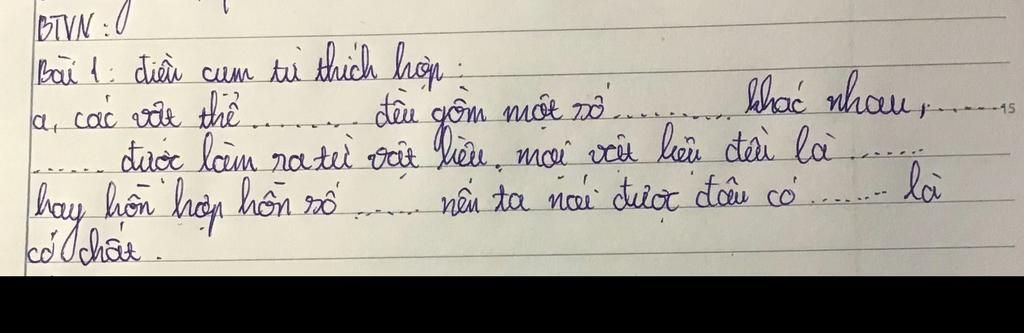 BTVN:
Bài 1: điền cum từ thích hợp:
a, các vật thể ......... đều gồm một số ........... khác nhau, ......
...... được làm ra từ vật liệu. mọi vật liệu đều là ......
hay hỗn hợp hôn số ...... nên ta nói được đâu có ....... là
có chất.